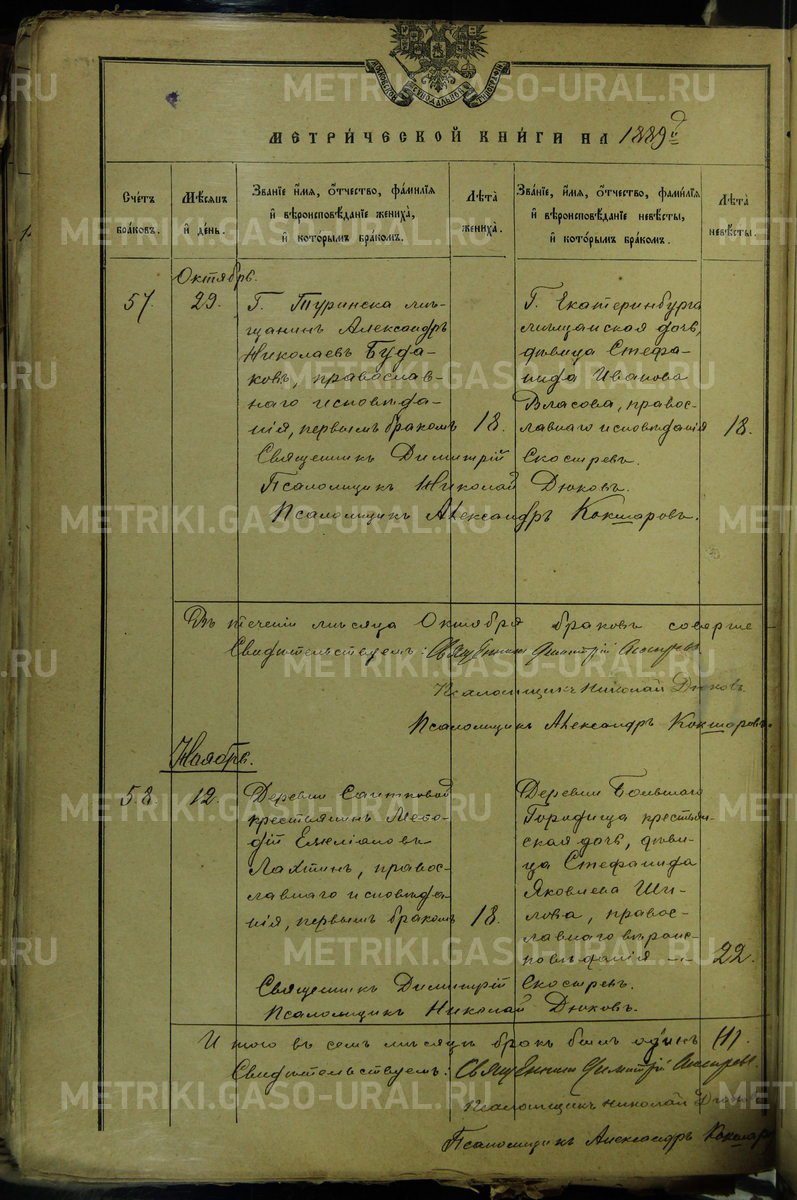 МЕТРИЧЕСКОЙ КНИГИ НА 1889 й
Счетъ браковъ.
Мѣсяцъ и день.
Званіе имя, отчество, фамилія и вѣроисповѣданіе жениха, и которымъ бракомъ.
Лѣта жениха.
Званіе, имя, отчество, фамилія и вѣроисповѣданіе невѣсты, и которымъ бракомъ.
Лѣта невѣсты.
Октябрь.
57.
29.
Г. Туринска мѣ-
щанинъ Александръ
Николаевъ Буда-
ковъ, православ-
наго исповѣда-
нія, первымъ бракомъ
18.
Г. Екатеринбурга
мѣщанская дочь,
дѣвица Стефа-
нида Иванова
Власова, правос-
лавнаго исповѣданія
18.
Священникъ Димитрій Скосыревъ.
Псаломщикъ Николай Дюковъ.
Псаломщикъ Александръ Кокшаровъ.
Въ теченіи мѣсяца Октября браковъ соверше
Свидѣтельствуемъ: Священникъ Димитрій Скосыревъ.
Псаломщикъ Николай Дюковъ
Псаломщикъ Александръ Кокшаровъ.
Ноябрь.
58.
12.
Деревни
крестьянинъ Меѳо-
дій Емеліановъ
Лахтинъ, правос-
лавнаго исповѣда-
нія, первымъ бракомъ
18.
Деревни Большаго
Городища крестьян-
ская дочь, дѣви-
ца Стефанида
Яковлева Ши-
лова, правос-
лавнаго вѣроис-
повѣданія —
22.
Священникъ Димитрій Скосыревъ.
Псаломщикъ Николай Дюковъ.
Итого въ семъ мѣсяцѣ бракъ былъ одинъ (1).
Свидѣтельствуемъ: Священникъ Димитрій Скосыревъ.
Псаломщикъ Николай Дюковъ
Псаломщикъ Александръ Кокшаров
METRIKI.GASO-URAL.RU